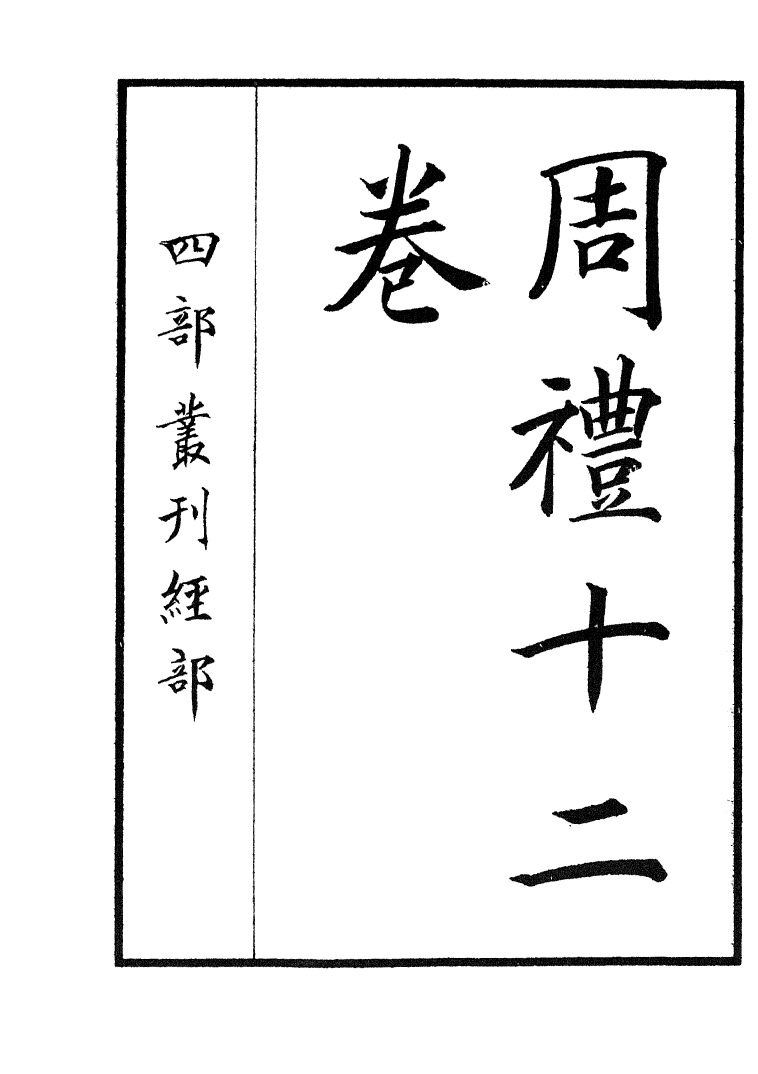 周禮十二
卷
四部叢刊經部